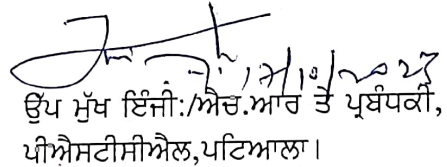 ਉੱਪ ਮੁੱਖ ਇੰਜੀ:/ਐਚ.ਆਰ ਤੇ ਪ੍ਰਬੰਧਕੀ,
ਪੀਐਸਟੀਸੀਐਲ,ਪਟਿਆਲਾ।